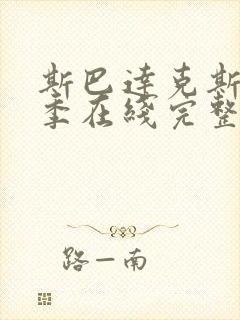 斯巴达克斯
季在线完整
路一南